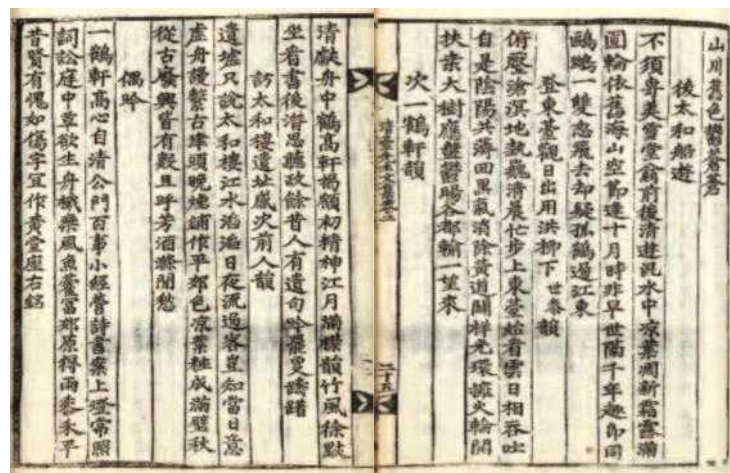 山川舊色鬱蒼蒼
後太和船遊
不須專美雪堂翁前後清遊汎水中凉葉凋新霜露滿
圓輪依舊海山空節進十月時非早世隔千年趣卽同
鷗鷺一雙忽飛去却疑孤鶴過江東
登東臺觀日出用洪柳下世泰韻
俯壓滄溟地勢巍淸晨忙步上東臺始看雲日相吞吐
自是陰陽共薄回黑氣消除黃道闢祥光環擁火輪開
扶桑大樹應盤鬱暘谷都輸一望來
次一鶴軒韻
二十五
淸獻舟中鶴高軒揭額初精神江月滿襟韻竹風徐默
坐看書後潛思聽政餘昔人有遺句吟罷更躊躇
訪太和樓遺址感次前人韻
遺墟只說太和樓江水滔滔日夜流過客豈知當日意
虛舟謾繫古津頭晩煙鋪作平郊色凉葉粧成滿壁秋
從古廢興皆有數且呼芳酒滌閒愁
偶吟
一鶴軒高心自淸公門百事小經營詩書案上燈常照
詞訟庭中草欲生舟檝樂風魚饔富郊原得雨黍禾平
昔賢有愧如傷字宜作黃堂座右銘